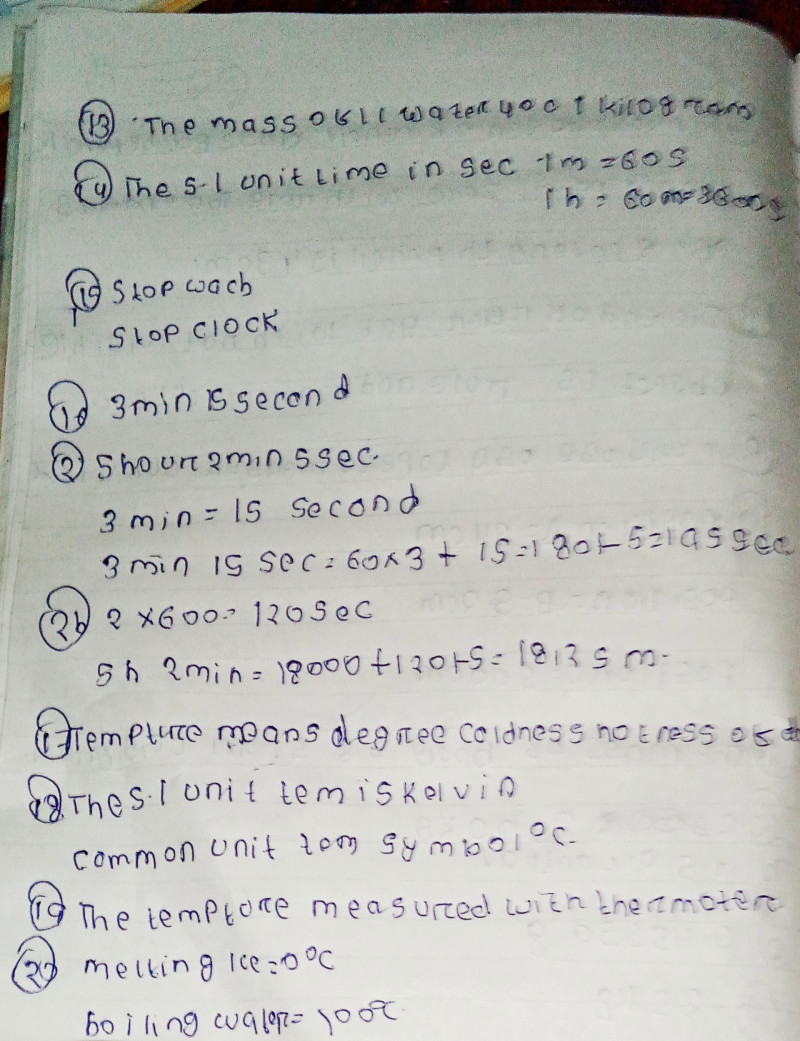 13 The mass of 1l water 4°c 1 kilogram
14 The S.I unit time in sec 1m = 60s
1h = 60m = 3600s
15 Stop wach
Stop clock
16 3min 15second
2 5hour 2min 5sec.
3 min = 15 second
3 min 15 sec = 60x3 + 15 = 180+5=195 sec
2b 2 x600 = 120sec
5h 2min = 18000+120+5= 18125 m.
17 Tempture means degree coldness hotness of
18 The S.I unit tem is kelvin
common unit tem symbol °c.
19 The tempture measured with thermoter
20 melting Ice = 0°C
boiling water = 100°c